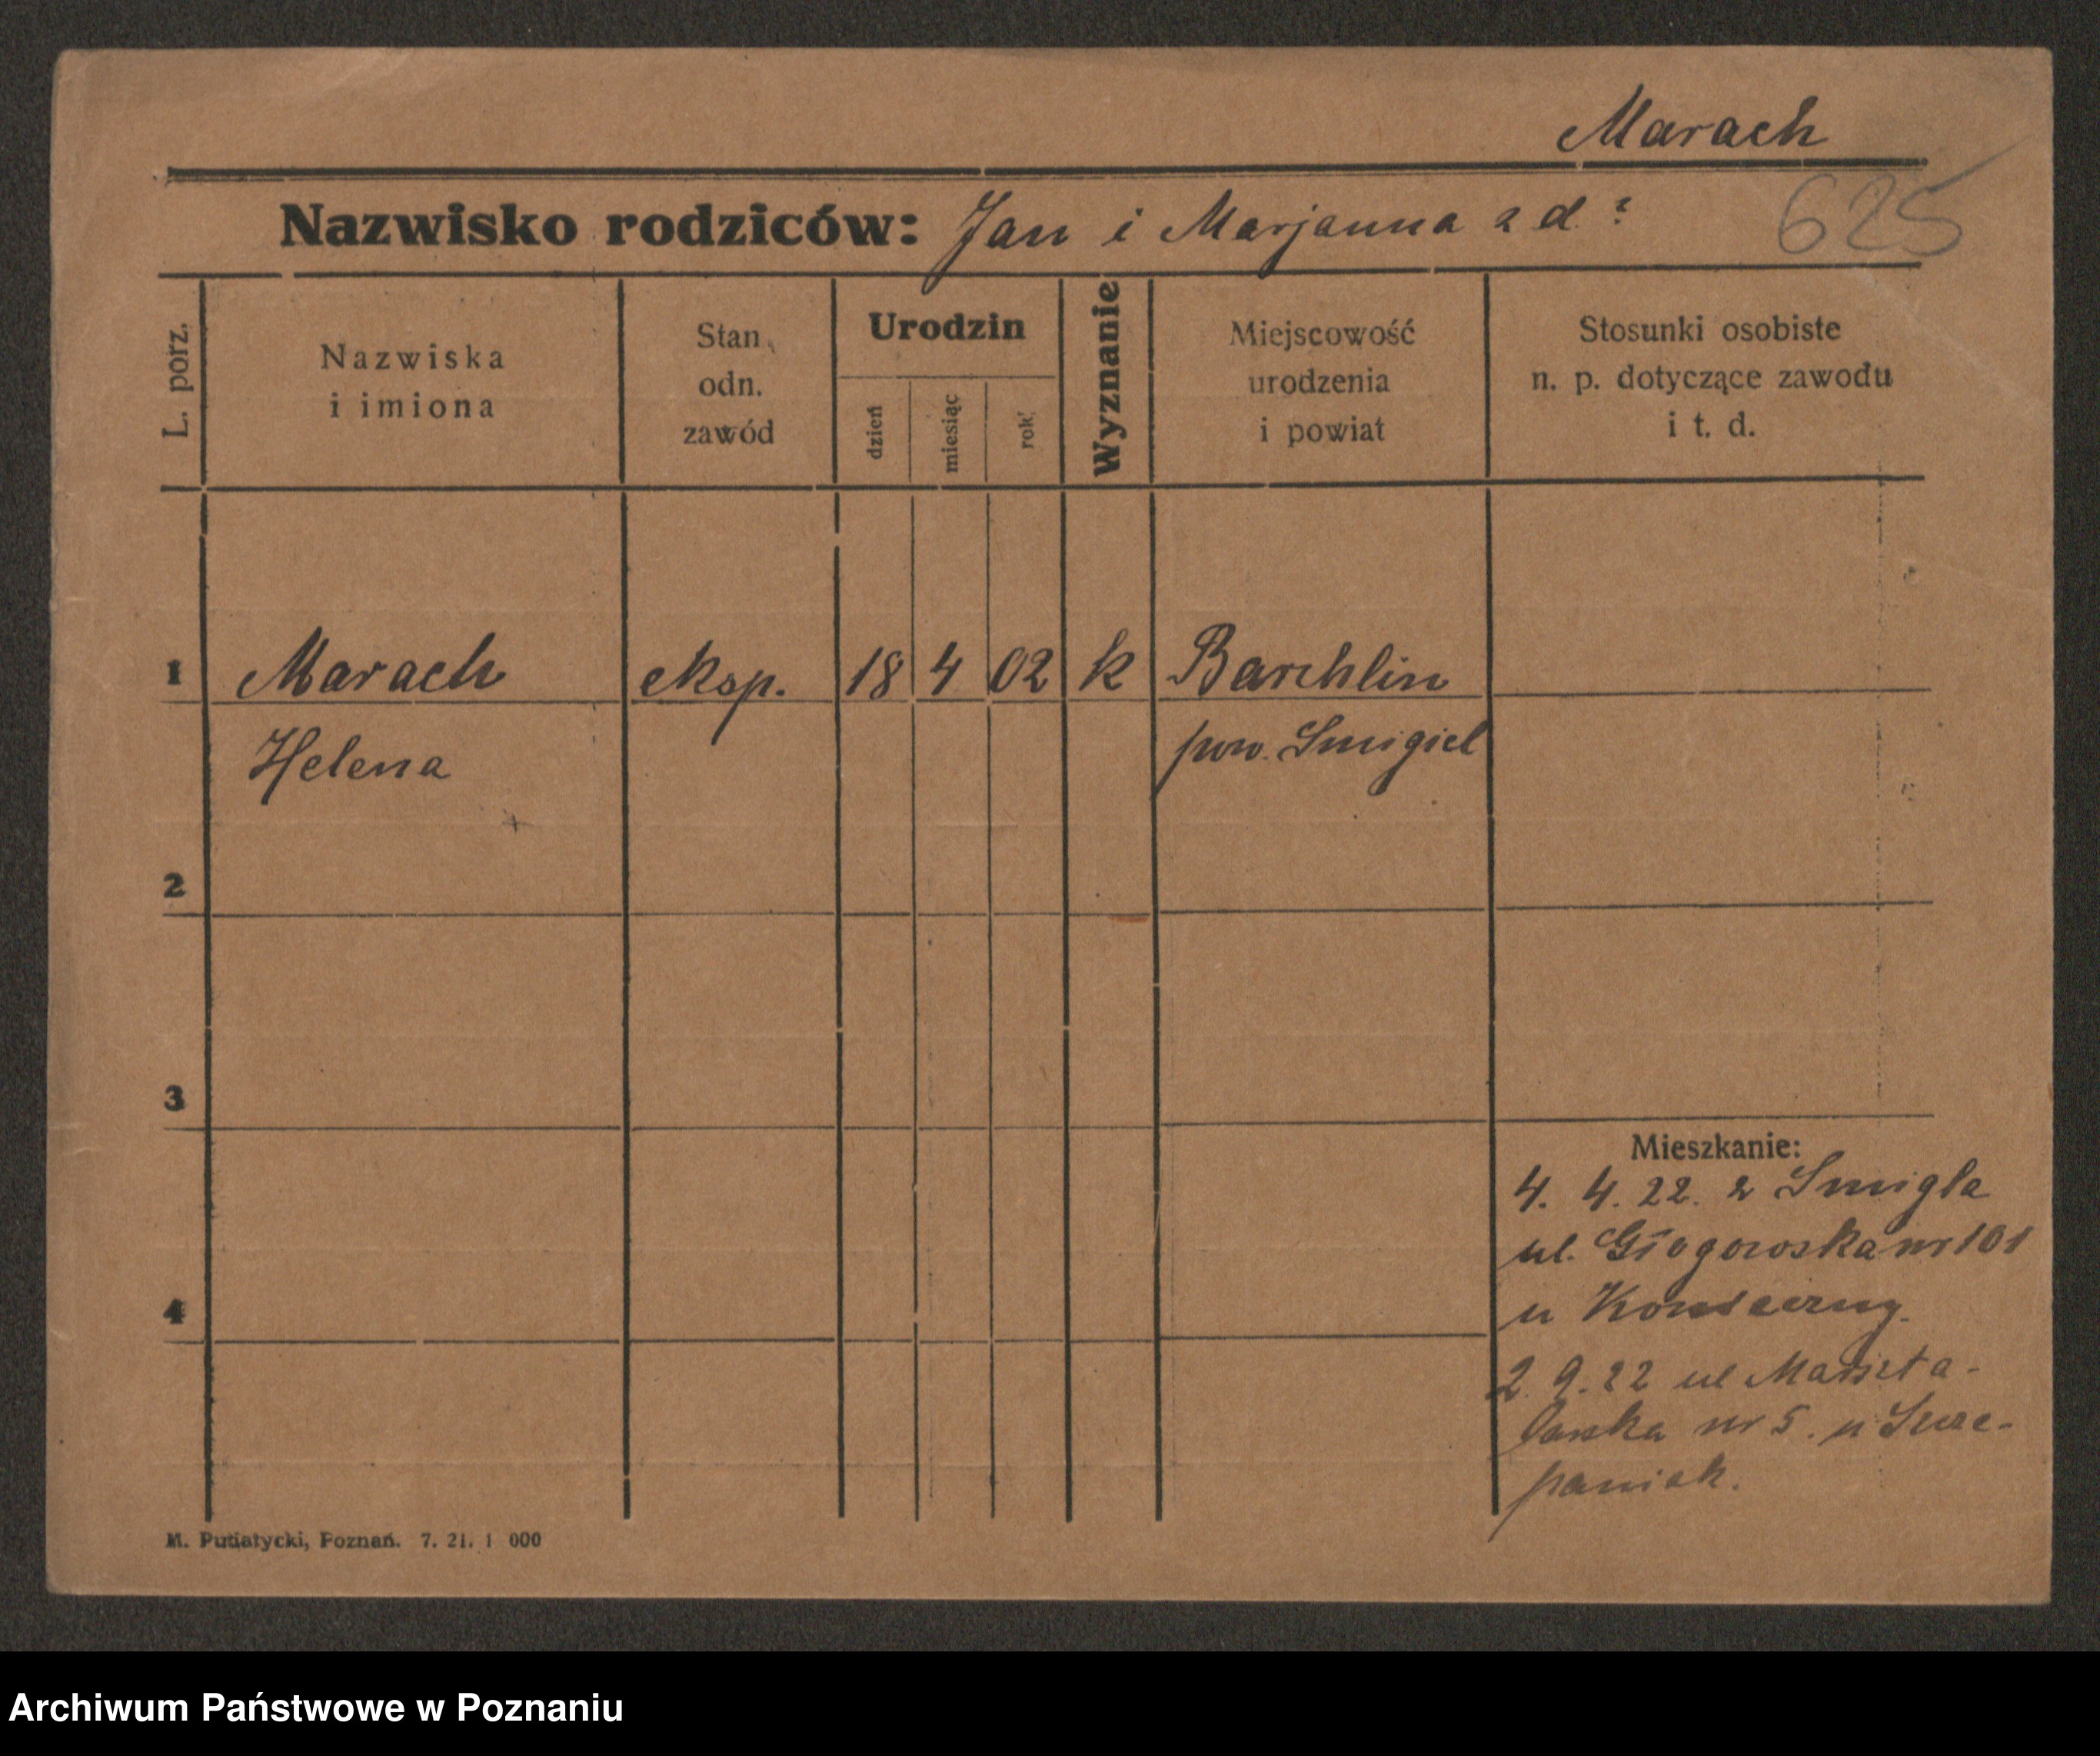 Marach
625
Nazwisko rodziców: Jan i Marjanna z d. ?
L. porz.
Nazwiska
i imiona
Stan
odn.
zawód
Urodzin
dzień
miesiąc
rok
Wyznanie
Miejscowość
urodzenia
i powiat
Stosunki osobiste
n. p. dotyczące zawodu
i t. d.
1 Marach eksp. 18 4 02 k Barchlin
Helena pow. Smigiel
2
3
Mieszkanie:
4. 4. 22. z Smigla
ul. Głogowska nr 101
4
u
2. 9. 22 ul Maszta-
larska nr 5. u Szcze-
paniak.
M. Putiatycki, Poznań. 7. 21. 1 000
Archiwum Państwowe w Poznaniu